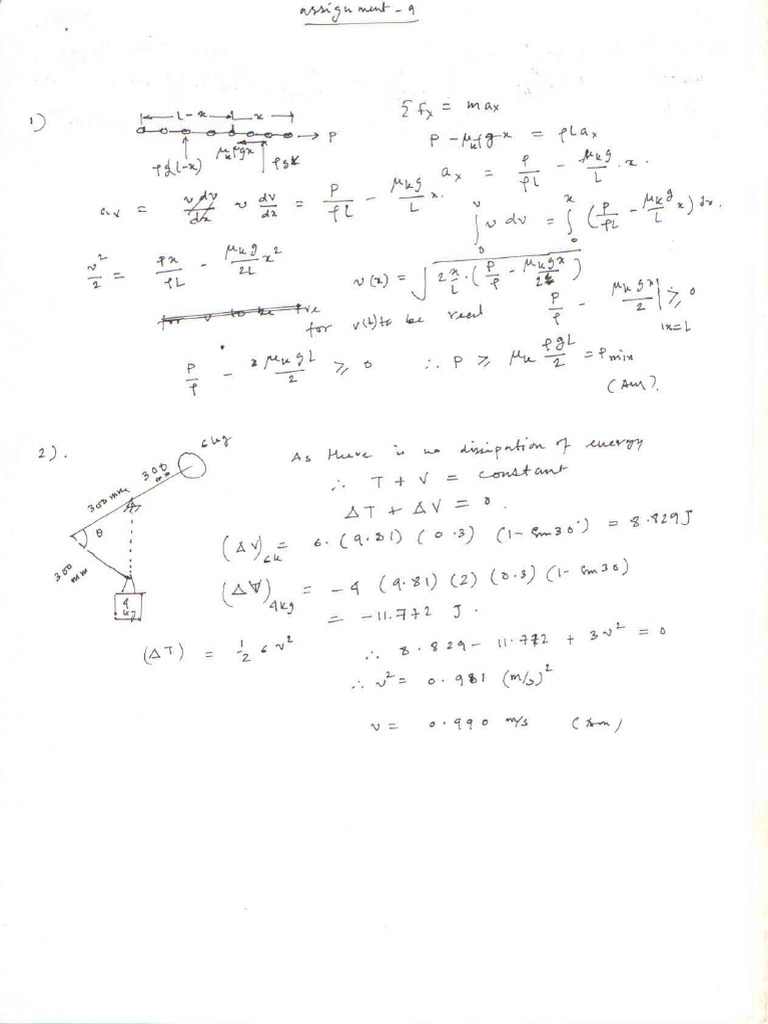 assignment - 9
1)
L-x x
P
ρg(L-x) μkρgx ρgx
Σ fx = max
P - μkρgx = ρLax
ax = P/ρL - μkg/L · x.
ax = v dv/dx v dv/dx = P/ρL - μkg/L x.
∫₀ᵛ v dv = ∫₀ˣ (P/ρL - μkg/L x) dx.
v²/2 = Px/ρL - μkg/2L x²
v(x) = √(2x/L · (P/ρ - μkgx/2))
for v to be +ve
for v(L) to be real P/ρ - μkgx/2 |x=L ≥ 0
P/ρ - μkgL/2 ≥ 0 ∴ P ≥ μk ρgL/2 = Pmin
(Ans).
2).
6kg
300 mm 300 mm
θ
300 mm
4 kg
As there is no dissipation of energy
∴ T + V = constant
ΔT + ΔV = 0.
(ΔV)6k = 6. (9.81) (0.3) (1 - sin30°) = 8.829J
(ΔV)4kg = -4 (9.81) (2) (0.3) (1 - sin30)
= -11.772 J.
(ΔT) = ½ 6 v² ∴ 8.829 - 11.772 + 3v² = 0
∴ v² = 0.981 (m/s)²
v = 0.990 m/s (Ans)